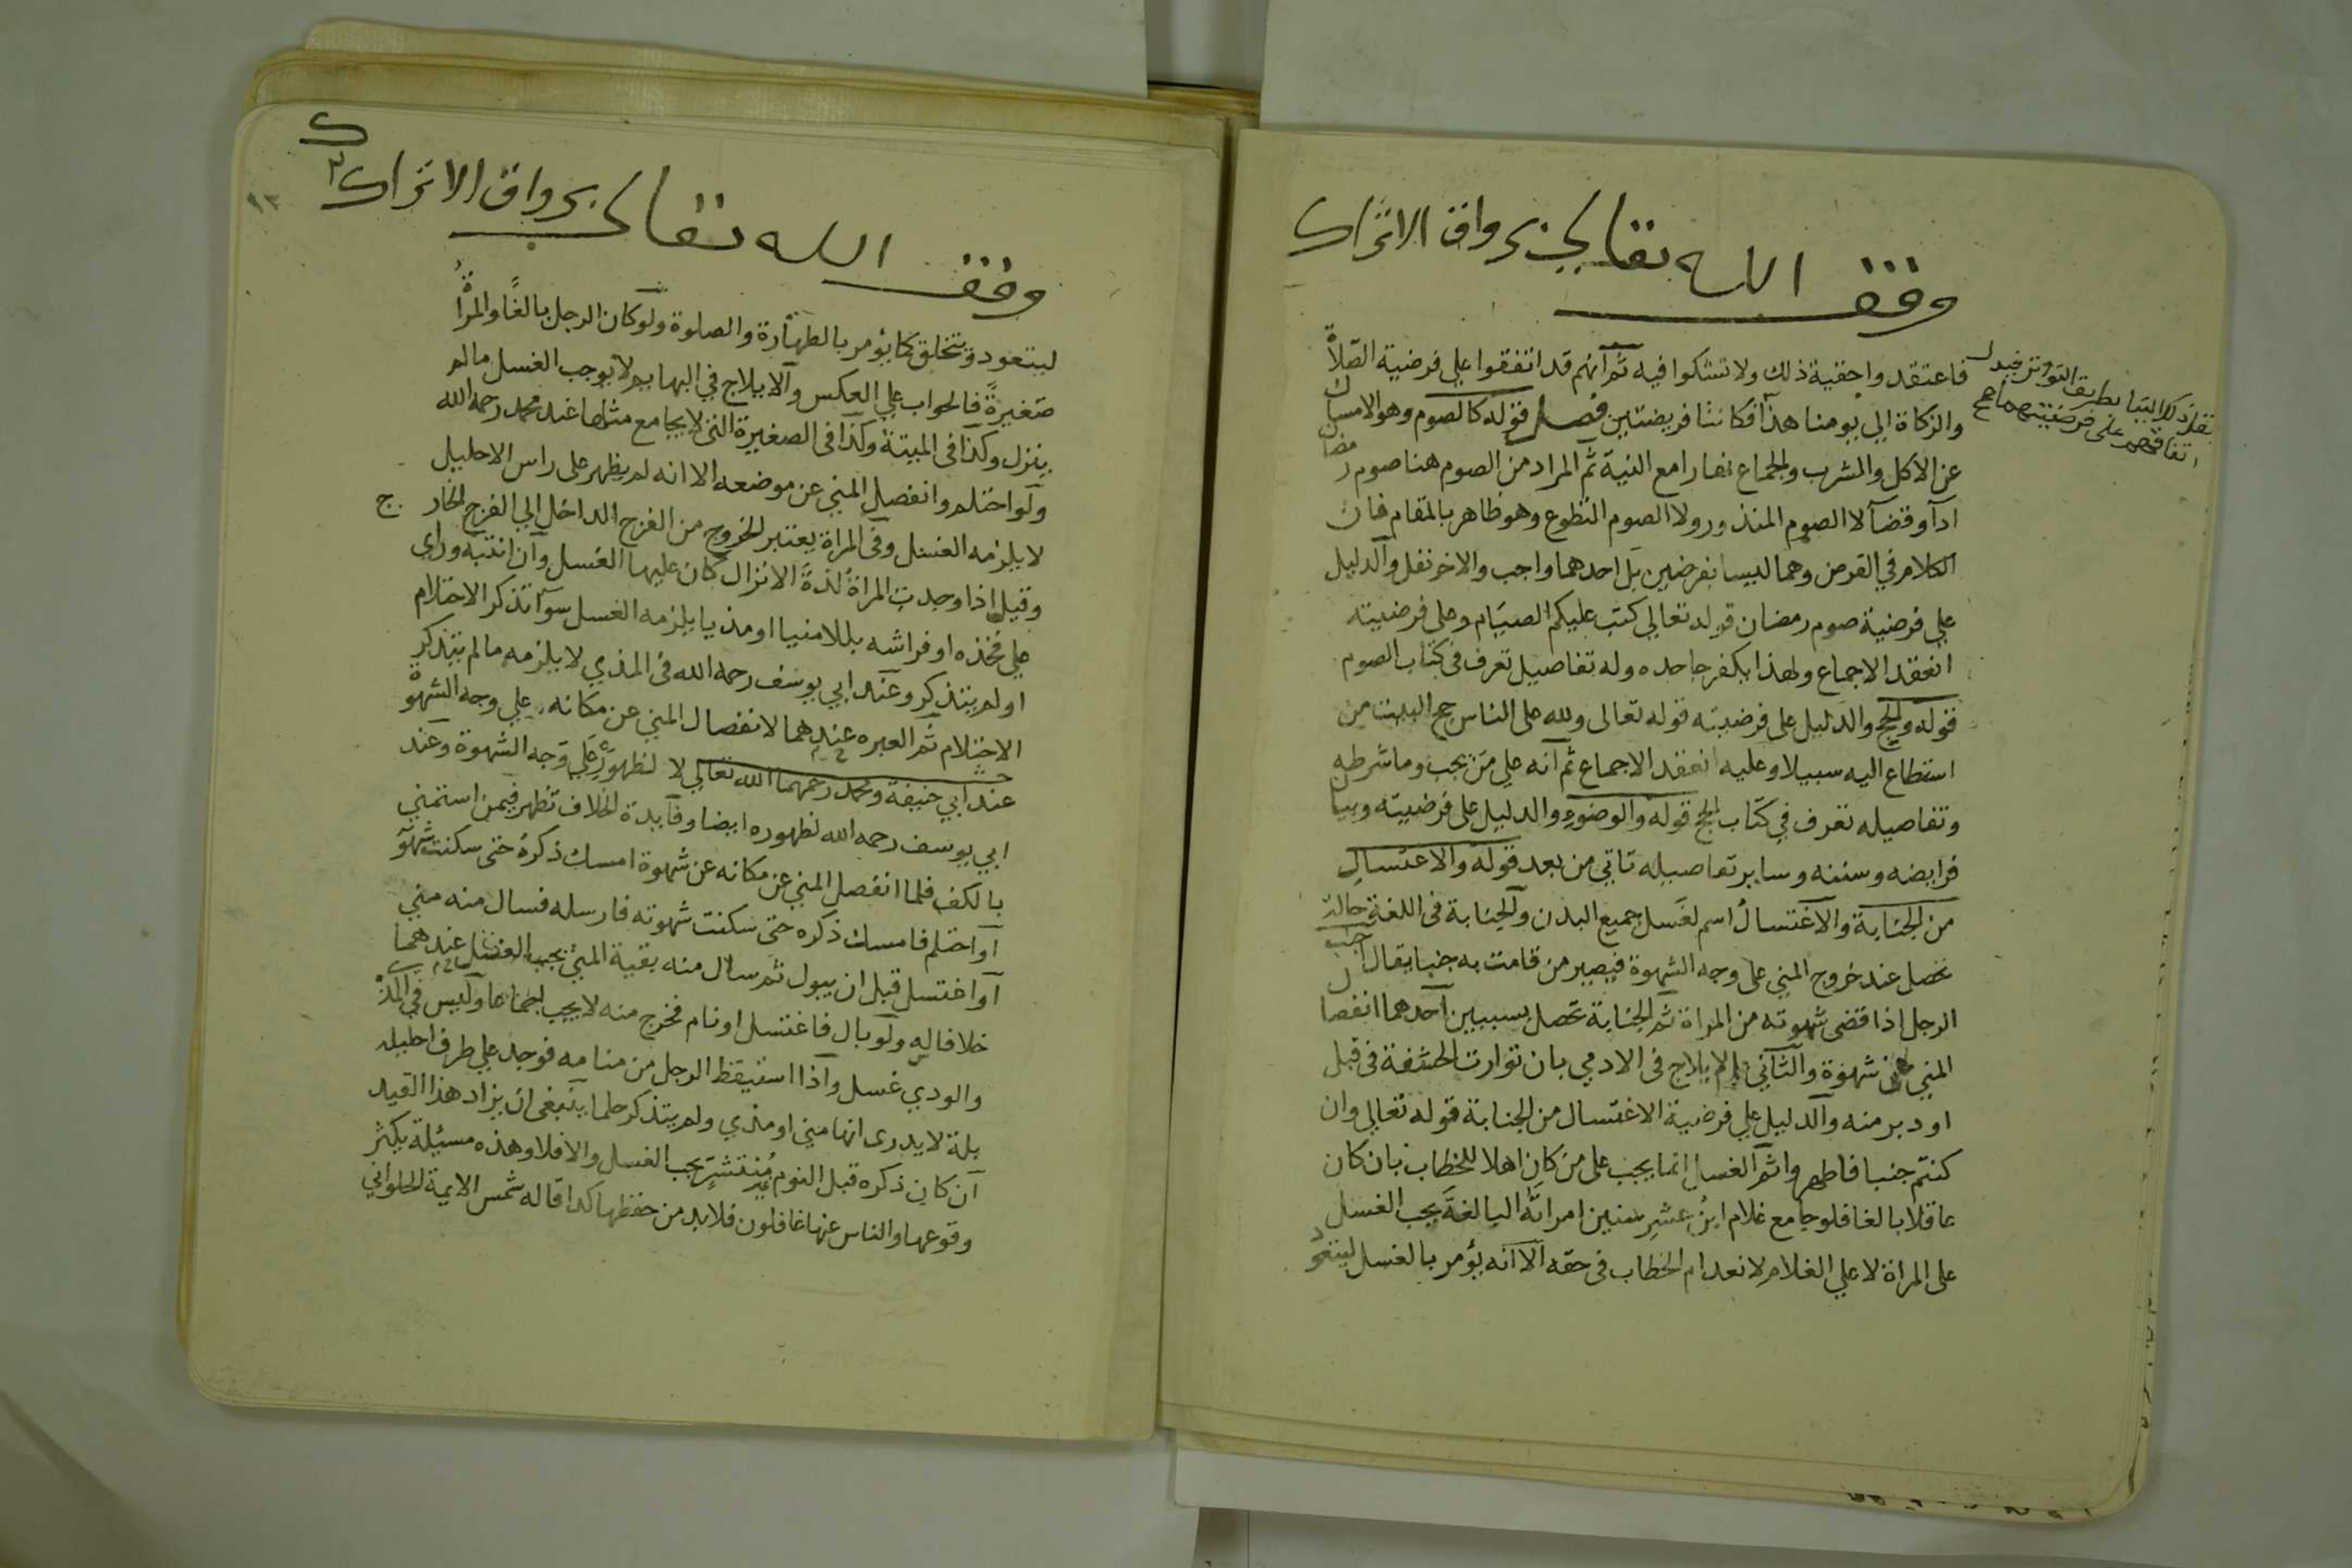 وقف الله تعالى برواق الاتراك
فاعتقدوا حقية ذلك ولا تشكوا فيه ثم انهم قد اتفقوا علي فرضية الصلاة
والزكاة الي يومنا هذا فكانتا فريضتين فصل قوله كالصوم وهو الامساك
عن الاكل والشرب والجماع نهارا مع النية ثم المراد من الصوم هنا صوم رمضان
ادآ وقضآ لا الصوم المنذور ولا الصوم التطوع وهو ظاهر بالمقام فان
الكلام في الفرض وهما ليسا بفرضين بل احدهما واجب والاخر نفل والدليل
علي فرضية صوم رمضان قوله تعالي كتب عليكم الصيام وعلى فرضيته
انعقد الاجماع ولهذا يكفر جاحده وله تفاصيل تعرف في كتاب الصوم
قوله والحج والدليل على فرضيته قوله تعالى ولله على الناس حج البيت من
استطاع اليه سبيلا وعليه انعقد الاجماع ثم انه علي من يجب وما شرطه
وتفاصيله تعرف في كتاب الحج قوله والوضوء والدليل على فرضيته وبيان
فرايضه وسننه وساير تفاصيله تاتي من بعد قوله والاغتسال
من الجنابة والاغتسال اسم لغسل جميع البدن والجنابة في اللغة حالة
تحصل عند خروج المني على وجه الشهوة فيصير من قامت به جنبا يقال اجنب
الرجل اذا قضى شهوته من المراة ثم الجنابة تحصل بسببين احدهما انفصال
المني عن شهوة والثاني بالايلاج في الادمي بان توارت الحشفة في قبل
او دبر منه والدليل علي فرضية الاغتسال من الجنابة قوله تعالي وان
كنتم جنبا فاطهروا ثم الغسل انما يجب على من كان اهلا للخطاب بان كان
عاقلا بالغا فلو جامع غلام ابن عشر سنين امراته البالغة يجب الغسل
على المراة لا علي الغلام لانعدام الخطاب في حقه الا انه يؤمر بالغسل ليتعود
بطريق التواتر فيدل
اتفاقهم على فرضيتهما صح
وقف الله تعالى برواق الاتراك
ليتعود ويتخلق كما يؤمر بالطهارة والصلوة ولو كان الرجل بالغا والمراة
صغيرة فالجواب علي العكس والايلاج في البهايم لا يوجب الغسل مالم
ينزل وكذا في الميتة وكذا في الصغيرة التي لا يجامع مثلها عند محمد رحمه الله
ولو احتلم وانفصل المني عن موضعه الا انه لم يظهر على راس الاحليل
لا يلزمه الغسل وفي المراة يعتبر الخروج من الفرج الداخل الي الفرج الخارج
وقيل اذا وجدت المراة لذة الانزال كان عليها الغسل وان انتبه وراي
علي فخذه او فراشه بللا منيا او مذيا يلزمه الغسل سوآ تذكر الاحتلام
او لم يتذكر وعند ابي يوسف رحمه الله في المذي لا يلزمه مالم يتذكر
الاحتلام ثم العبره عندهما لانفصال المني عن مكانه علي وجه الشهوة
عند ابي حنيفة ومحمد رحمهما الله تعالي لا لظهوره علي وجه الشهوة وعند
ابي يوسف رحمه الله لظهوره ايضا وفايدة الخلاف تظهر فيمن استمني
بالكف فلما انفصل المني عن مكانه عن شهوة امسك ذكره حتى سكنت شهوته
او احتلم فامسك ذكره حتى سكنت شهوته فارسله فسال منه مني
او اغتسل قبل ان يبول ثم سال منه بقية المني يجب الغسل عندهما
خلافا له ولو بال فاغتسل او نام فخرج منه لا يجب اجماعا وليس في المذي
والودي غسل واذا استيقظ الرجل من منامه فوجد علي طرف احليله
بلة لا يدرى انها مني او مذي ولم يتذكر حلما ينبغي ان يزاد هذا القيد
ان كان ذكره قبل النوم غير منتشر يجب الغسل والا فلا وهذه مسئلة يكثر
وقوعها والناس عنها غافلون فلا بد من حفظها كذا قاله شمس الايمة الحلواني